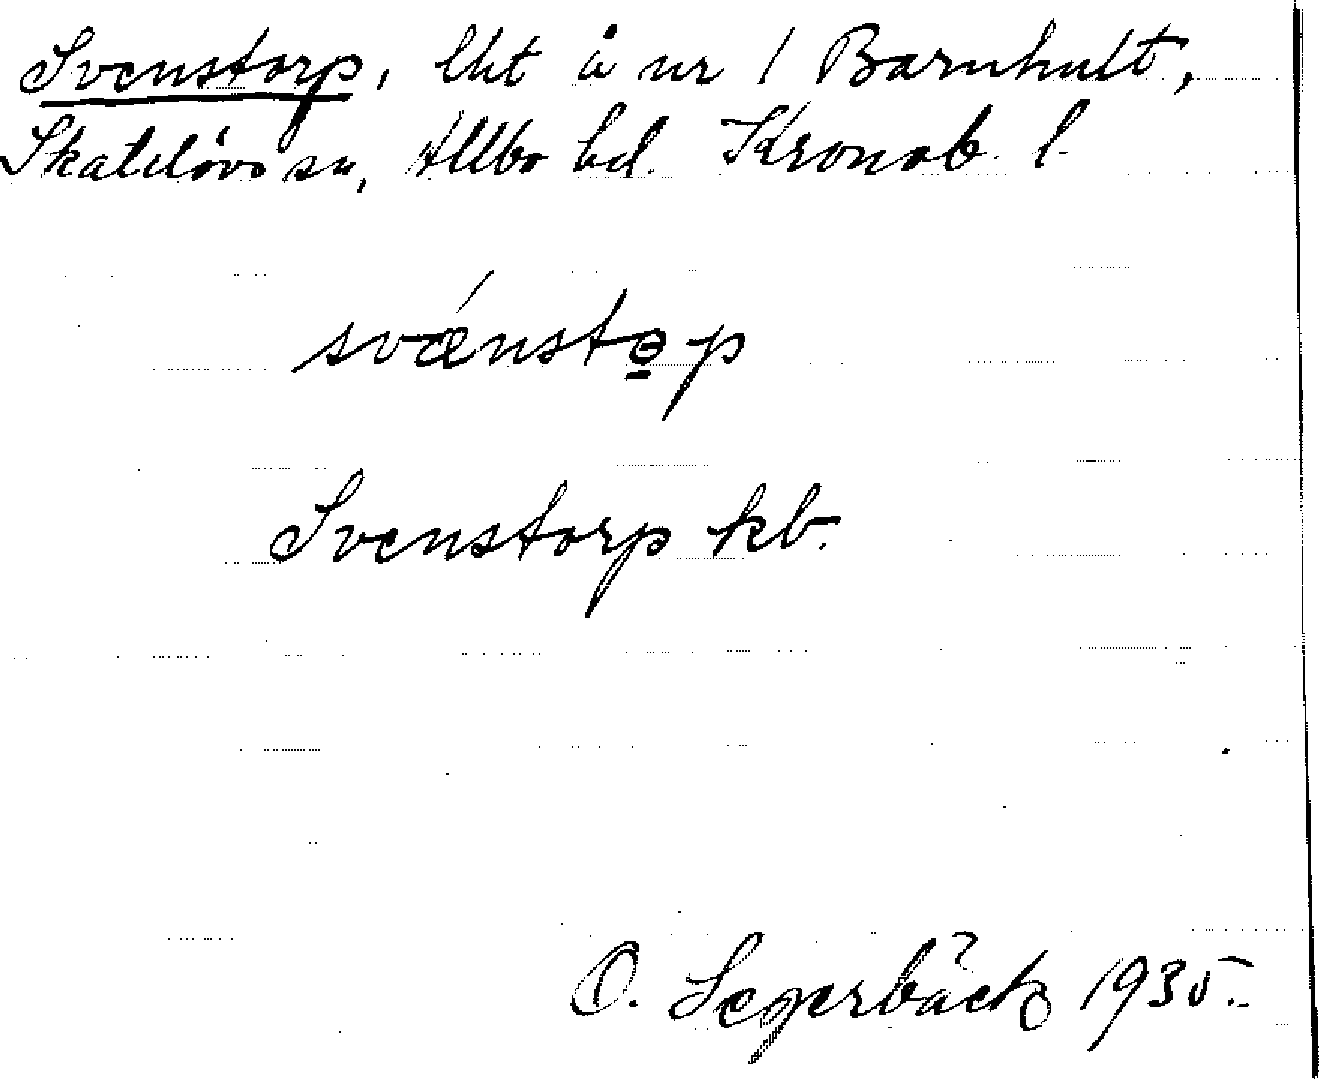 Svenstorp, lht å nr 1 Barnhult,
Skatelövs sn, Allbo hd. Kronob. l.
svǽnstə̱p
Svenstorp kb.
O. Segerbäck 1935.